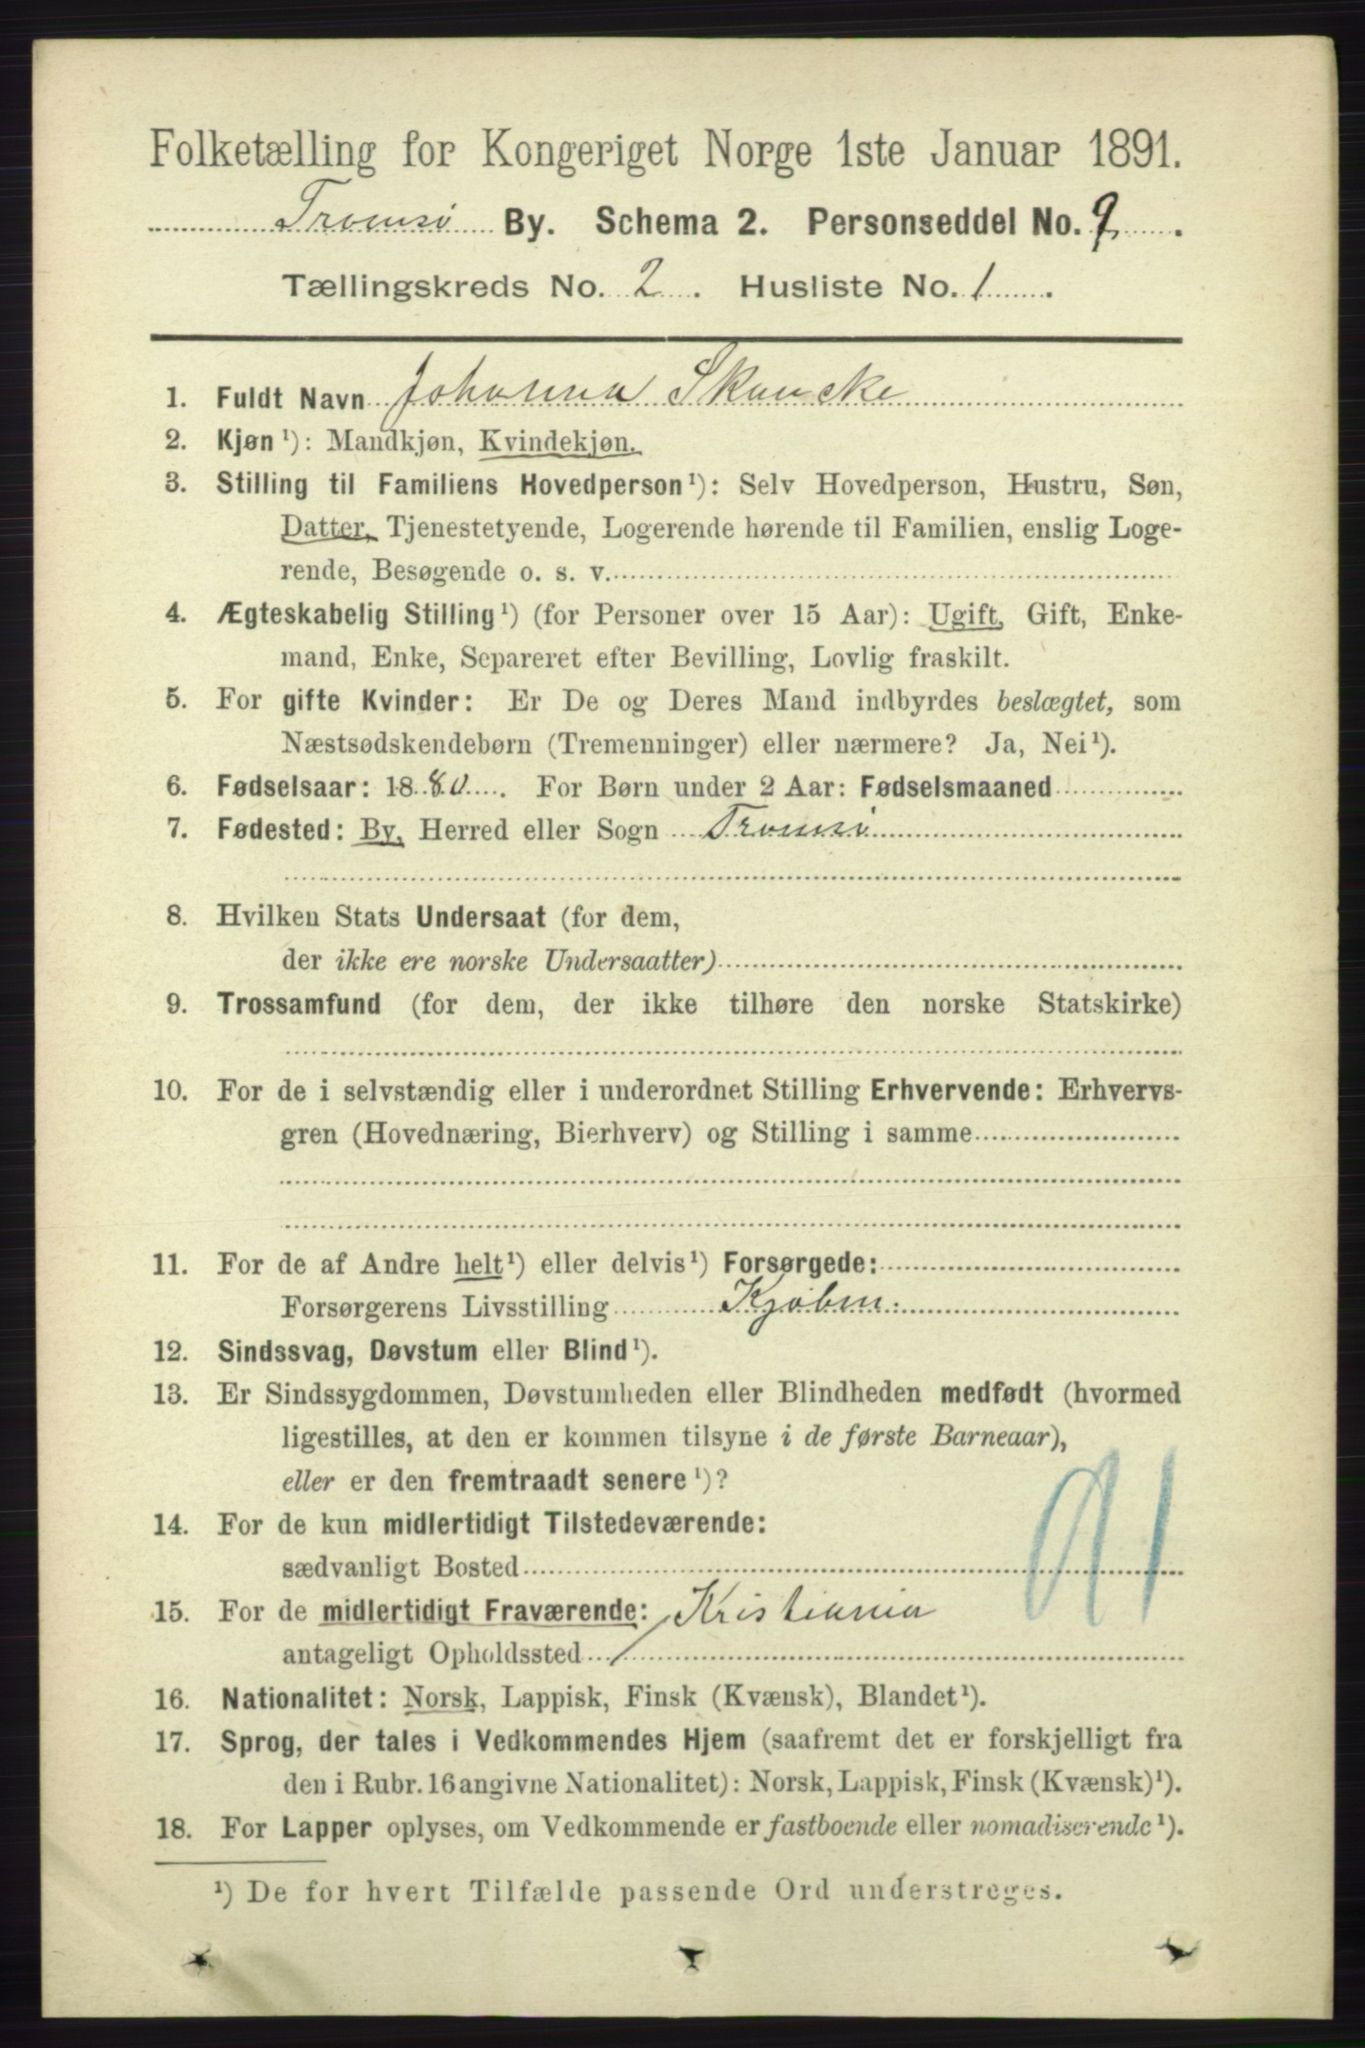 Folketælling for Kongeriget Norge 1ste Januar 1891.
Tromsø By. Schema 2. Personseddel No. 9.
Tællingskreds No. 2. Husliste No. 1.
1. Fuldt Navn Johanna Skancke
2. Kjøn¹): Mandkjøn, Kvindekjøn.
3. Stilling til Familiens Hovedperson¹): Selv Hovedperson, Hustru, Søn,
Datter, Tjenestetyende, Logerende hørende til Familien, enslig Loge-
rende, Besøgende o. s. v.
4. Ægteskabelig Stilling¹) (for Personer over 15 Aar): Ugift, Gift, Enke-
mand, Enke, Separeret efter Bevilling, Lovlig fraskilt.
5. For gifte Kvinder: Er De og Deres Mand indbyrdes beslægtet, som
Næstsødskendebørn (Tremenninger) eller nærmere? Ja, Nei¹).
6. Fødselsaar: 1880. For Børn under 2 Aar: Fødselsmaaned
7. Fødested: By, Herred eller Sogn Tromsø
8. Hvilken Stats Undersaat (for dem,
der ikke ere norske Undersaatter)
9. Trossamfund (for dem, der ikke tilhøre den norske Statskirke)
10. For de i selvstændig eller i underordnet Stilling Erhvervende: Erhvervs-
gren (Hovednæring, Bierhverv) og Stilling i samme
11. For de af Andre helt¹) eller delvis¹) Forsørgede:
Forsørgerens Livsstilling Kjøbm.
12. Sindssvag, Døvstum eller Blind¹).
13. Er Sindssygdommen, Døvstumheden eller Blindheden medfødt (hvormed
ligestilles, at den er kommen tilsyne i de første Barneaar),
eller er den fremtraadt senere¹)?
14. For de kun midlertidigt Tilstedeværende:
sædvanligt Bosted
15. For de midlertidigt Fraværende: Kristiania
antageligt Opholdssted
91
16. Nationalitet: Norsk, Lappisk, Finsk (Kvænsk), Blandet¹).
17. Sprog, der tales i Vedkommendes Hjem (saafremt det er forskjelligt fra
den i Rubr. 16 angivne Nationalitet): Norsk, Lappisk, Finsk (Kvænsk)¹).
18. For Lapper oplyses, om Vedkommende er fastboende eller nomadiserende¹).
¹) De for hvert Tilfælde passende Ord understreges.